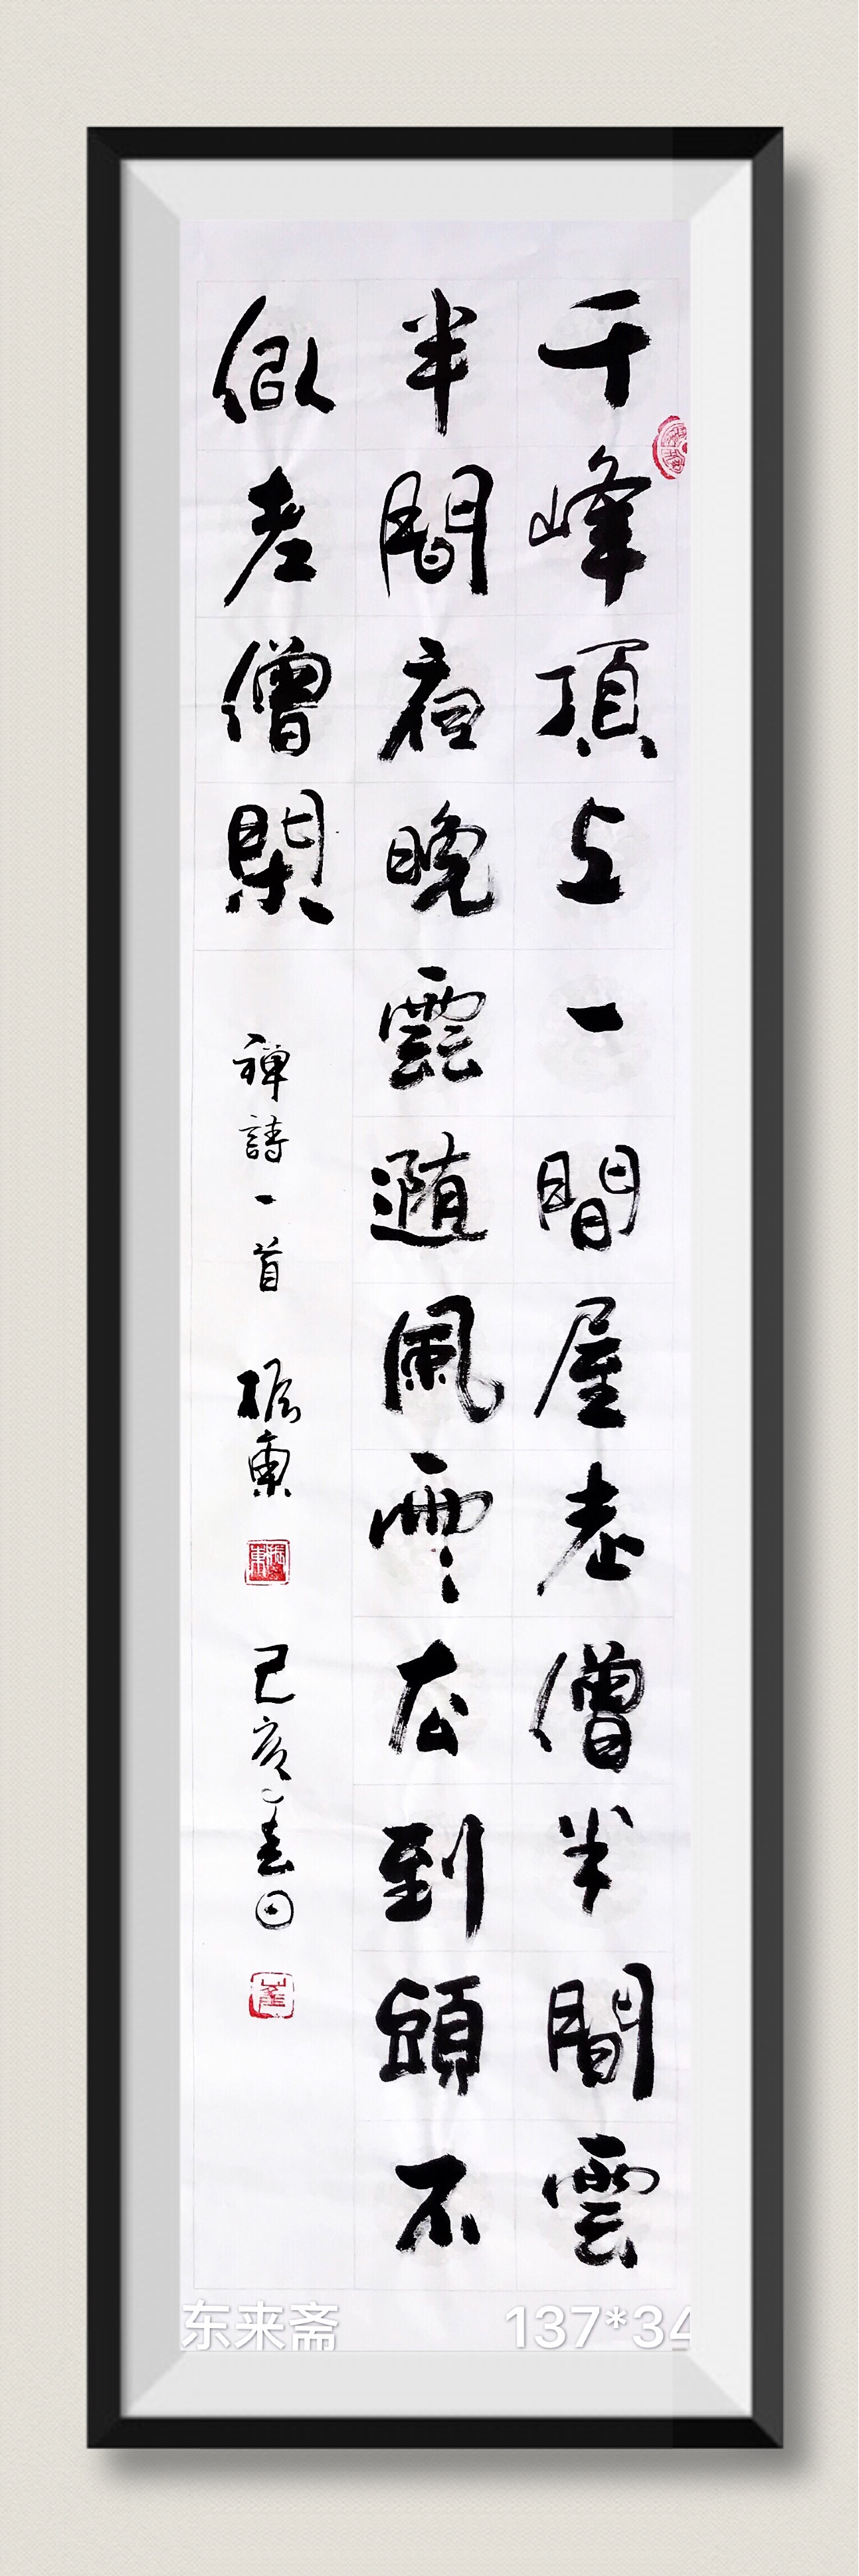 千峰頂上一間屋老僧半間雲
半間夜晚雲隨風雨去到頭不
似老僧閑
禪詩一首 振東 己亥春日
东来斋
137*34